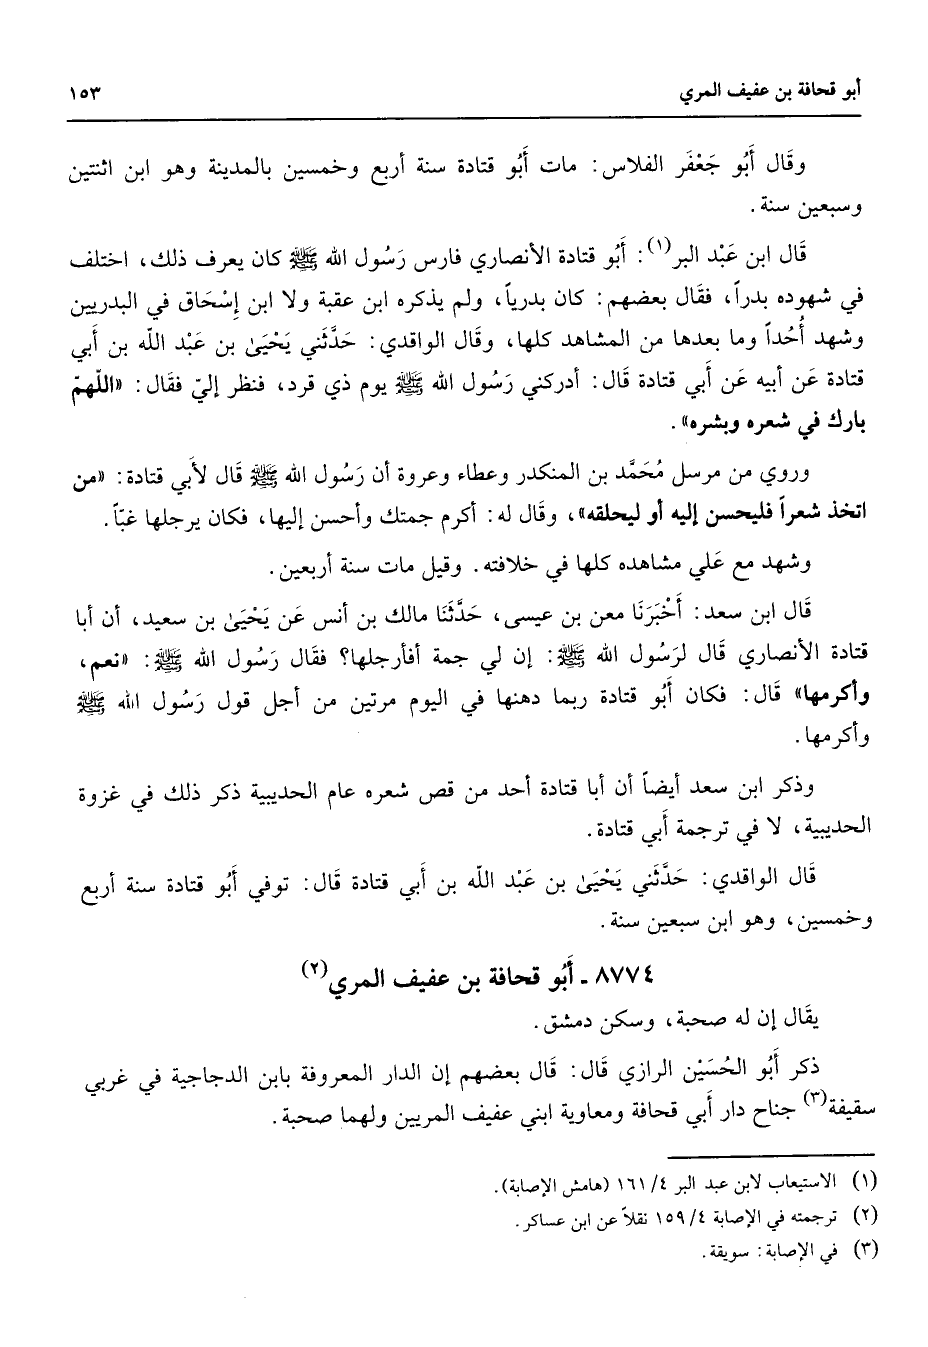 أبو قحافة بن عفيف المري ١٥٣
وقَال أَبُو جَعْفَر الفلاس: مات أَبُو قتادة سنة أربع وخمسين بالمدينة وهو ابن اثنتين
وسبعين سنة.
قَال ابن عَبْد البر(١): أَبُو قتادة الأنصاري فارس رَسُول الله ﷺ كان يعرف ذلك، اختلف
في شهوده بدراً، فقَال بعضهم: كان بدرياً، ولم يذكره ابن عقبة ولا ابن إِسْحَاق في البدريين
وشهد أُحُداً وما بعدها من المشاهد كلها، وقَال الواقدي: حَدَّثَني يَحْيَىٰ بن عَبْد الله بن أَبي
قتادة عَن أبيه عَن أَبي قتادة قَال: أدركني رَسُول الله ﷺ يوم ذي قرد، فنظر إليّ فقَال: «اللّهمّ
بارك في شعره وبشره».
وروي من مرسل مُحَمَّد بن المنكدر وعطاء وعروة أن رَسُول الله ﷺ قَال لأَبي قتادة: «من
اتخذ شعراً فليحسن إليه أو ليحلقه»، وقَال له: أكرم جمتك وأحسن إليها، فكان يرجلها غبّاً.
وشهد مع عَلي مشاهده كلها في خلافته. وقيل مات سنة أربعين.
قَال ابن سعد: أَخْبَرَنَا معن بن عيسى، حَدَّثَنَا مالك بن أنس عَن يَحْيَىٰ بن سعيد، أن أبا
قتادة الأنصاري قَال لرَسُول الله ﷺ: إن لي جمة أفأرجلها؟ فقَال رَسُول الله ﷺ: «نعم،
وأكرمها» قَال: فكان أَبُو قتادة ربما دهنها في اليوم مرتين من أجل قول رَسُول الله ﷺ
وأكرمها.
وذكر ابن سعد أيضاً أن أبا قتادة أحد من قص شعره عام الحديبية ذكر ذلك في غزوة
الحديبية، لا في ترجمة أَبي قتادة.
قَال الواقدي: حَدَّثَني يَحْيَىٰ بن عَبْد اللّه بن أَبي قتادة قَال: توفي أَبُو قتادة سنة أربع
وخمسين، وهو ابن سبعين سنة.
٨٧٧٤ ـ أَبُو قحافة بن عفيف المري(٢)
يقَال إن له صحبة، وسكن دمشق.
ذكر أَبُو الحُسَيْن الرازي قَال: قَال بعضهم إن الدار المعروفة بابن الدجاجية في غربي
سقيفة(٣) جناح دار أَبي قحافة ومعاوية ابني عفيف المريين ولهما صحبة.
(١) الاستيعاب لابن عبد البر ٤/ ١٦١ (هامش الإصابة).
(٢) ترجمته في الإصابة ٤/ ١٥٩ نقلاً عن ابن عساكر.
(٣) في الإصابة: سويقة.